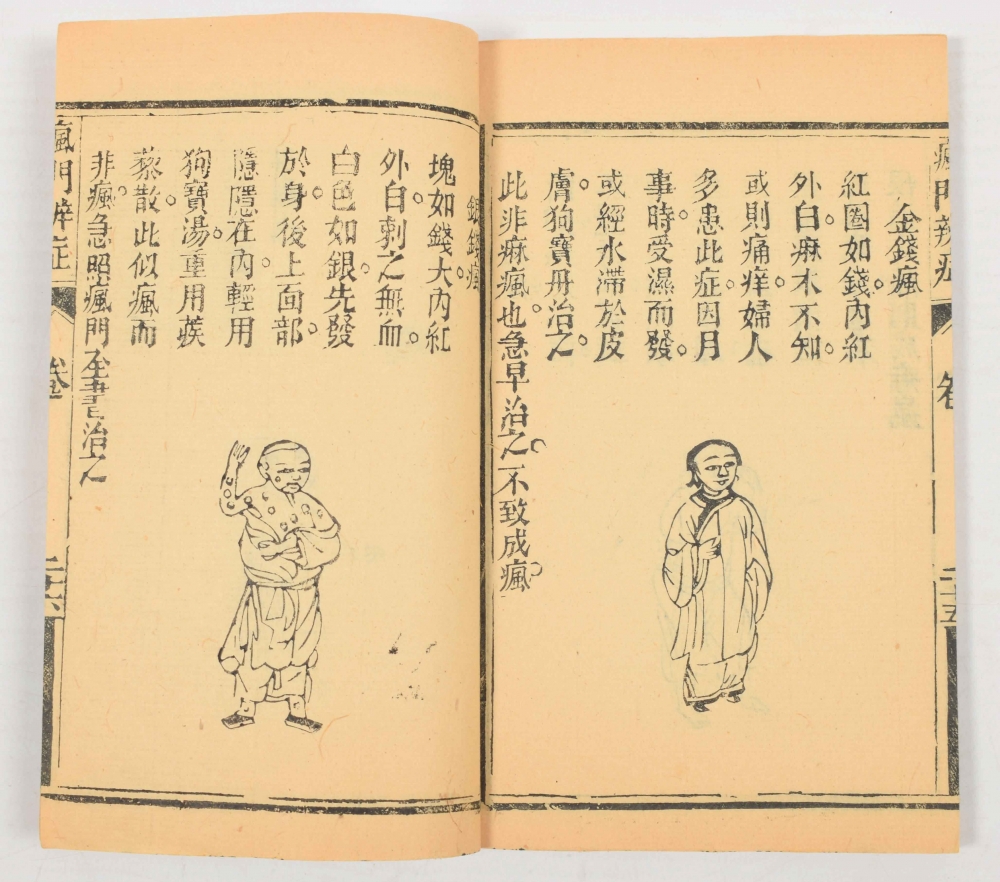 金錢瘋
紅圈如錢。內紅
外白。痳木不知。
或則痛痒。婦人
多患此症。因月
事時受濕而發。
或經水滯於皮
膚。狗寶丹治之。
此非痳瘋也。急早治之。不致成瘋。
二十五
銀錢瘋
塊如錢。大內紅
外白。刺之無血。
白色如銀。先發
於身後上面部。
隱隱在內。輕用
狗寶湯。重用蒺
藜散。此似瘋而
非瘋。急照瘋門全書治之
瘋門辨症
卷
二十六